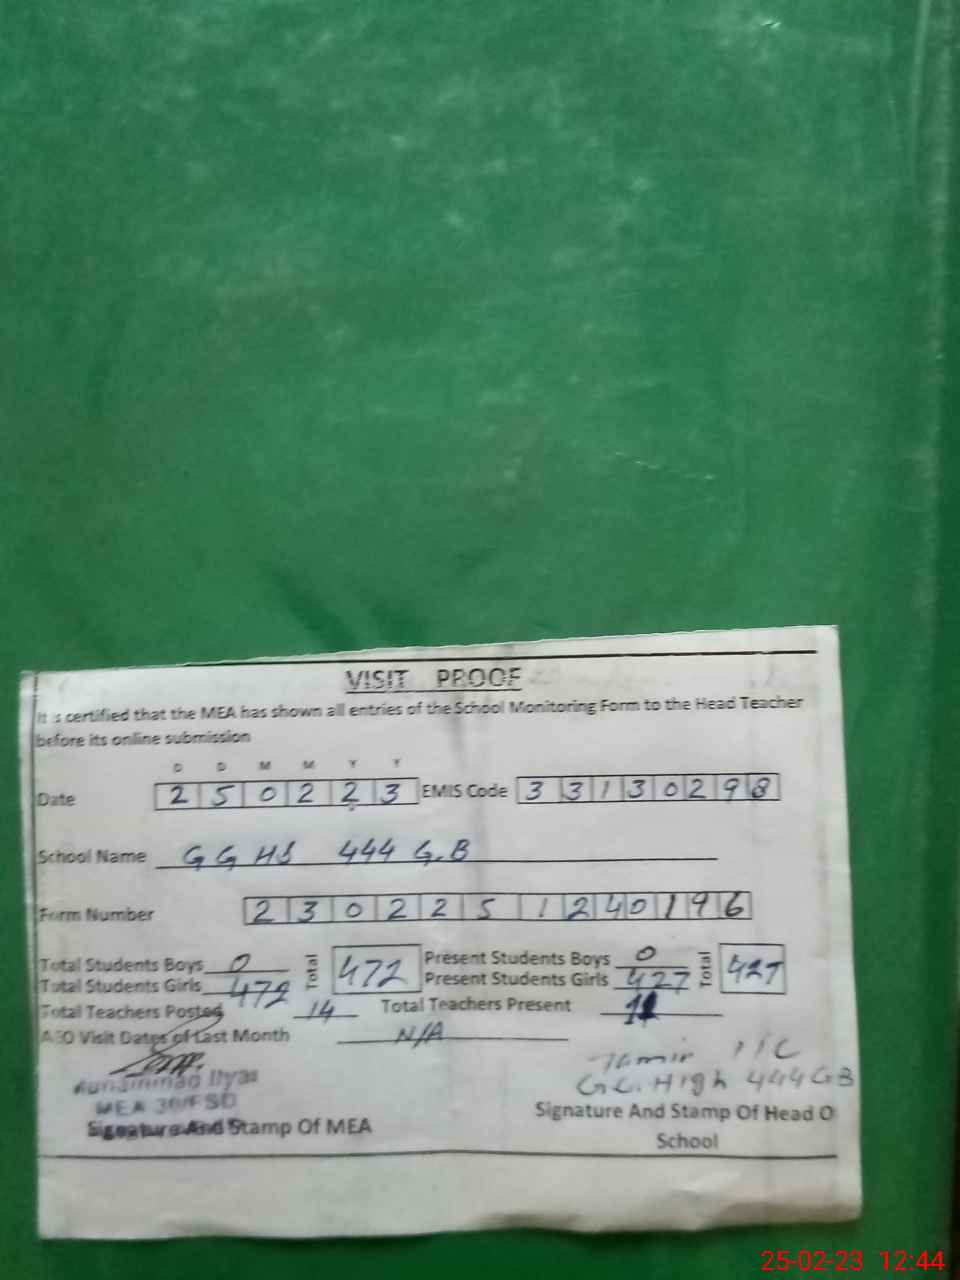 VISIT PROOF
It is certified that the MEA has shown all entries of the School Monitoring Form to the Head Teacher
before its online submission
D D M M Y Y
Date 2 5 0 2 2 3 EMIS Code 3 3 1 3 0 2 9 8
School Name G G HS 444 G.B
Form Number 2 3 0 2 2 5 1 2 4 0 1 9 6
Total Students Boys 0 Total 472 Present Students Boys 0 Total 427
Total Students Girls 472 Present Students Girls 427
Total Teachers Posted 14 Total Teachers Present
AEO Visit Dates of Last Month N/A
Muhammad Ilyas
MEA 36/FSD
G.G. High 444 GB
Signature And Stamp Of MEA
Signature And Stamp Of Head O
School
25-02-23 12:44